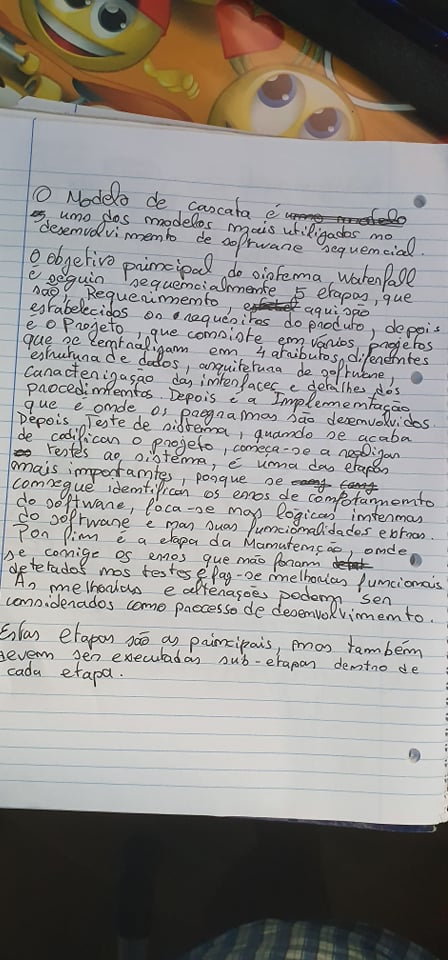 O Modelo de cascata é
umo dos modelos mais utilizados no
desenvolvimento de software sequencial.
O objetivo principal do sistema Waterfall
é seguir sequencialmente 5 etapas, que
são, Requerimento aqui são
estabelecidos os requesitos do produto, depois
e o Projeto, que consiste em vários projetos
que se centralizam em 4 atributos diferentes
estrutura de dados, arquitetura de software,
caracterização das interfaces e detalhes dos
procedimentos. Depois é a Implementação
que é onde os programas são desenvolvidos.
Depois, Teste de sistema, quando se acaba
de codificar o projeto, começa-se a realizar
testes ao sistema, é uma das etapas
mais importantes, porque se
consegue identificar os erros de comportamento
do software, foca-se nas lógicas internas
do software e nas suas funcionalidades externas.
Por fim é a etapa da Manutenção, onde
se corrige os erros que não foram
detetados nos testes e faz-se melhorias funcionais
As melhorias e alterações podem ser
considerados como processo de desenvolvimento.
Estas etapas são as principais, mas também
devem ser executadas sub-etapas dentro de
cada etapa.